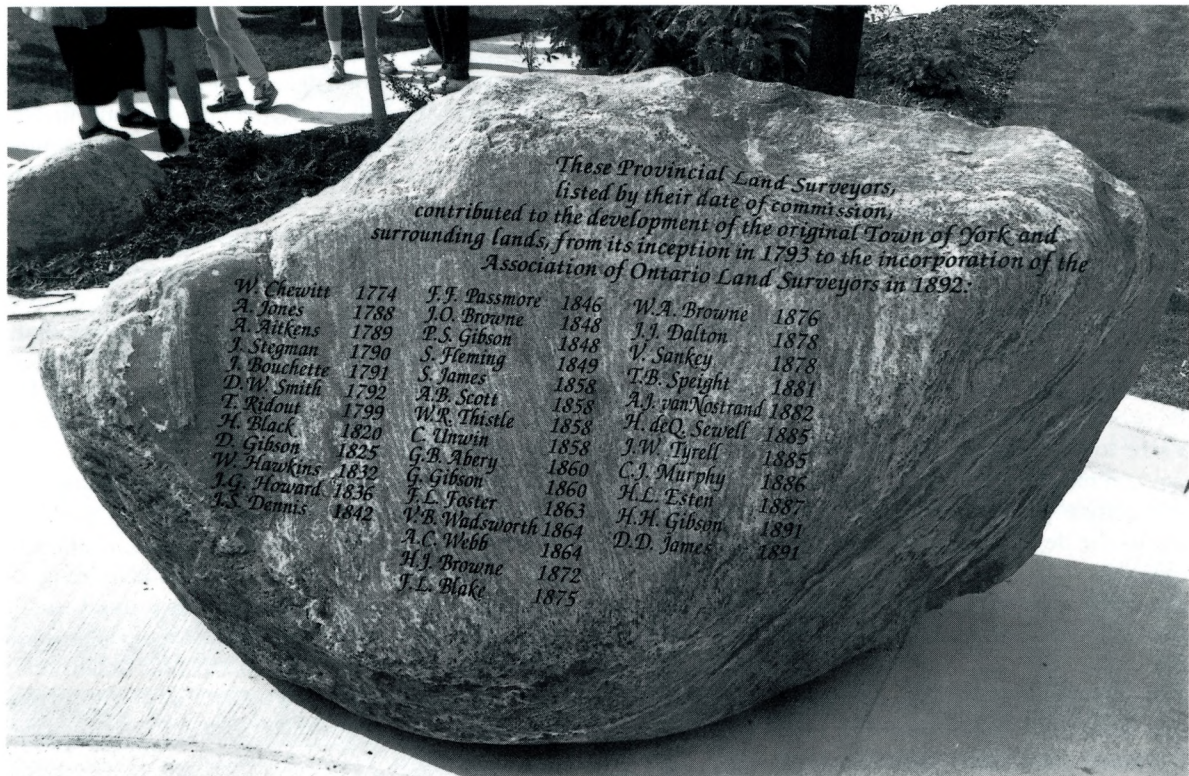 These Provincial Land Surveyors,
listed by their date of commission,
contributed to the development of the original Town of York and
surrounding lands, from its inception in 1793 to the incorporation of the
Association of Ontario Land Surveyors in 1892:
W. Chewitt 1774
A. Jones 1788
A. Aitkens 1789
J. Stegman 1790
J. Bouchette 1791
D.W. Smith 1792
T. Ridout 1799
H. Black 1820
D. Gibson 1825
W. Hawkins 1832
J.G. Howard 1836
J.S. Dennis 1842
F.F. Passmore 1846
J.O. Browne 1848
P.S. Gibson 1848
S. Fleming 1849
S. James 1858
A.B. Scott 1858
W.R. Thistle 1858
C. Unwin 1858
G.B. Abery 1860
G. Gibson 1860
F.L. Foster 1863
V.B. Wadsworth 1864
A.C. Webb 1864
H.J. Browne 1872
F.L. Blake 1875
W.A. Browne 1876
J.J. Dalton 1878
V. Sankey 1878
T.B. Speight 1881
A.J. vanNostrand 1882
H. deQ. Sewell 1885
J.W. Tyrell 1885
C.J. Murphy 1886
H.L. Esten 1887
H.H. Gibson 1891
D.D. James 1891